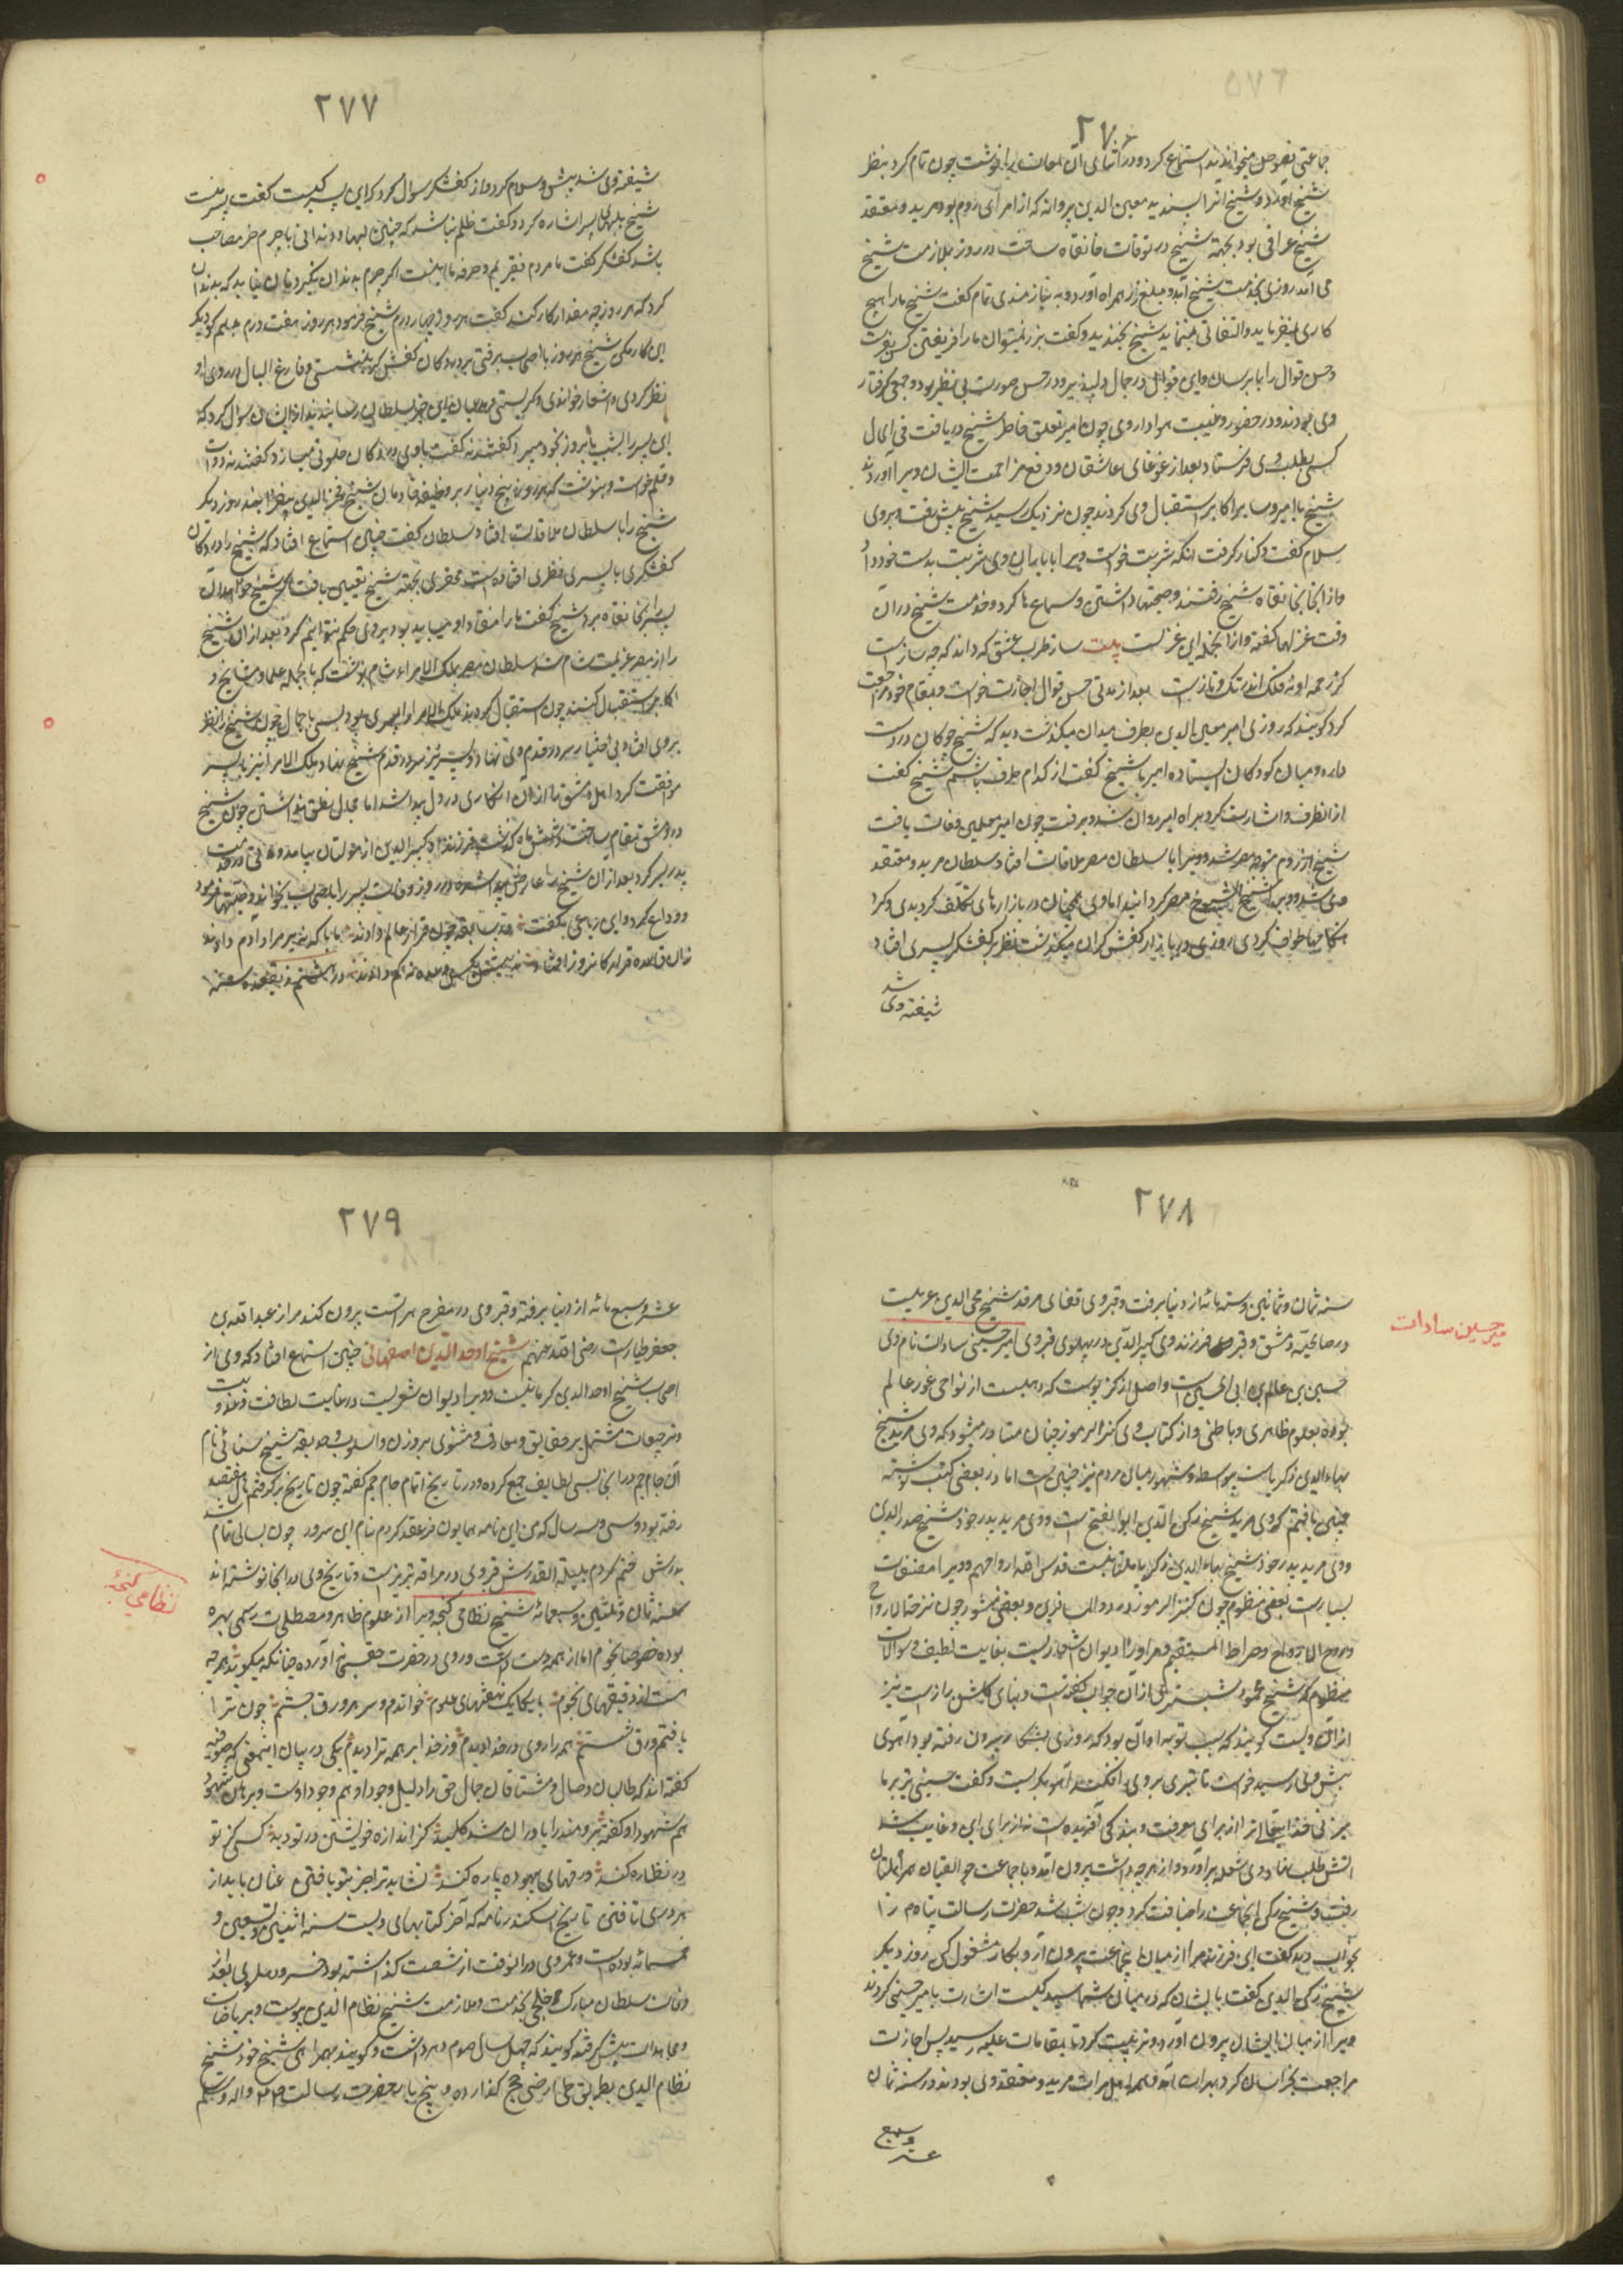 ۲۷۶
جماعتی فصوص میخواندند استماع کرد و در اثنای آن لمعات را نوشت چون تمام کرد بنظر
شیخ آورد و شیخ انرا پسندید معین الدین پروانه که از امرای روم بود مرید و معتقد
شیخ عراقی بود بجهة شیخ در توقات خانقاه ساخت و هر روز بملازمت شیخ
می آمد روزی بخدمت شیخ آمد و مبلغ زر همراه آورد و به نیازمندی تمام گفت شیخ ما را هیچ
کاری نمیفرماید و التفاتی نمینماید شیخ بخندید و گفت بزر نمیتوان ما را فریفتن کس بفرست
و حسن قوال را بما برسان و این قوال در جمال دلپذیر و در حسن صورت بی نظیر بود و جمعی گرفتار
وی بودند و در حضور و غیبت هوادار وی چون امیر تعلق خاطر شیخ دریافت فی الحال
کسی بطلب وی فرستاد بعد از غوغای عاشقان و دفع مزاحمت ایشان ویرا آوردند
شیخ با امیر و سایر اکابر استقبال وی کردند چون نزدیک رسید شیخ پیش رفت و بر وی
سلام گفت و کنار گرفت انکه شربت خواست و ویرا با یاران وی شربت بدست خود داد
و از انجا بخانقاه شیخ رفتند و صحبتها داشتن و سماع ها کرد و خدمت شیخ در آن
وقت غزلها گفته و از انجمله این غزلست بیت ساز طرب عشق که داند که چه سازست
کز زخمه او نه فلک اندر تک و تازست بعد از مدتی حسن قوال اجازت خواست و بمقام خود مراجعت
کرد گویند که روزی امیر معین الدین بطرف میدان میگذشت دید که شیخ چوگان در دست
دارد و میان کودکان ایستاده امیر با شیخ گفت از کدام طرف باشم شیخ گفت
از انطرف و اشارت کرد براه امیر روان شد و برفت چون امیر معین وفات یافت
شیخ از روم متوجه مصر شد و ویرا با سلطان مصر ملاقات افتاد سلطان مرید و معتقد
وی شد و ویرا شیخ الشیوخ مصر گردانید اما وی همچنان در بازارها بی تکلف گردیدی و گرد
هنگامها طواف کردی روزی در بازار کفشگران میگذشت نظر بر کفشگر پسری افتاد
شیفته وی شد
۲۷۷
شیفته وی شد پیش و سلام کرد و از کفشگر سوال کرد که این پسر کیست گفت پسر منست
شیخ بلبهای پسر اشاره کرد و گفت ظلم نباشد که چنین لبها و دندانی با چرم خر مصاحب
باشد کفشگر گفت ما مردم فقیریم و حرفه ما اینست اگر چرم بدندان نگیرد نان نیابد که بدندان
کرد که هر روز چه مقدار کار کند گفت هر روز چهار درم شیخ فرمود هر روز هفت درم بدهم گو دیگر
این کار مکن شیخ هر روز با اصحاب برفتی بر در دکان کفشگر بنشستی و فارغ البال در روی او
نظر کردی و اشعار خواندی و گریستی مدعیان این خبر بسلطان رسانیدند از ایشان سوال کرد که
این پسر را بشب یا بروز با خود میبرد گفتند نه گفت با وی در دکان خلوتی میسازد گفتند نه دوات
و قلم خواست و بنوشت که هر روز پنج دینار بر وظیفه خادمان شیخ فخر الدین بیفزایند روز دیگر
شیخ را با سلطان ملاقات افتاد سلطان گفت چنین استماع افتاد که شیخ را در دکان
کفشگری با پسری نظری افتاده است محقری بجهة شیخ تعیین یافت اگر شیخ خواهد آن
پسر را بخانقاه برد شیخ گفت ما را منقاد او میباید بود بر وی حکم نتوانیم کرد بعد از آن شیخ
را از مصر عزیمت شام شد سلطان مصر بملک الامراء شام نوشت که با جمله علما و مشایخ و
اکابر استقبال کنند چون استقبال کردند ملک الامرا را پسری بود بس با جمال چون شیخ را نظر
بر وی افتاد بی اختیار سر در قدم وی نهاد و پسر نیز سر در قدم شیخ نهاد ملک الامرا نیز با پسر
موافقت کرد اهل دمشق را از آن انکاری در دل پیدا شد اما مجال نطق نداشتند چون شیخ
در دمشق مقام ساخت و شش ماه گذشت فرزند او کبیر الدین از مولتان بیامد و مدتی در خدمت
پدر بسر کرد بعد از آن شیخ را عارضه پیدا شده در روز وفات پسر را با اصحاب بخواند وصیتها فرمود
و وداع کرد و این رباعی بگفت در سابقه چون قرار عالم دادند مانا که نه بر مراد آدم دادند
زان قاعده و قرار کانروز افتاد نه بیش بکس وعده نه کم دادند در هشتم ذیقعده سنه
۲۷۸
سنه ثمان و ثمانین و ستمائه از دنیا برفت و قبر وی در قفای مرقد شیخ محی الدین عربیست
در صالحیه دمشق و قبر فرزند وی کبیر الدین در پهلوی قبر وی امیر حسینی سادات نام وی
حسین بن عالم بن ابی الحسین است و اصل از کزیوست که دهیست از نواحی غور عالم
بوده بعلوم ظاهری و باطنی و از کتاب وی کنز الرموز چنان متبادر میشود که وی مرید شیخ
بهاءالدین زکریاست بیواسطه و مشهور میان مردم نیز چنین است اما در بعضی کتب نوشته
چنین یافتم که وی مرید شیخ رکن الدین ابوالفتح است و وی مرید پدر خود شیخ صدر الدین
و وی مرید پدر خود شیخ بهاء الدین زکریا ملتانیست قدس الله ارواحهم و ویرا مصنفات
بسیار است بعضی منظوم چون کنز الرموز و زاد المسافرین و بعضی منثور چون نزهة الارواح
و روح الارواح و صراط المستقیم و مر او را دیوان اشعاریست بغایت لطیف و سوالات
منظوم که شیخ محمود شبستری از آن جواب گفته است و بنای گلشن راز است نیز
از آن ویست گویند که سبب توبه او آن بود که روزی بشکار بیرون رفته بود آهوی
پیش وی رسید خواست تا تیری بر وی افکند آهو بنگریست و گفت حسینی تیر بر ما
میزنی خدایتعالی ترا از برای معرفت و بندگی آفریده است نه از برای این و غایب شد
آتش طلب از نهاد وی شعله برآورد و از هرچه داشت بیرون آمد و با جماعت جوالقیان همراه بملتان
رفت و شیخ رکن الدین آن جماعت را ضیافت کرد و چون شب شد حضرت رسالت پناه م را
بخواب دید گفت این فرزند مرا از میان این جماعت بیرون آر و بکار مشغول کن روز دیگر
شیخ رکن الدین گفت با ایشان که در میان شما سید کیست اشارت بامیر حسینی کردند
ویرا از میان ایشان بیرون آورد و تربیت کرد تا بمقامات علیه رسید پس اجازت
مراجعت بخراسان کرد بهرات آمد و همه اهل هرات مرید و معتقد وی بودند در سنه ثمان
عشر و سبع
میر حسین سادات
۲۷۹
عشر و سبعمائه از دنیا برفته و قبر وی در مصرخ هراتست بیرون گنبد مزار عبد الله بن
جعفر طیار است رضی الله عنهم شیخ اوحد الدین اصفهانی چنین استماع افتاد که وی از
اصحاب شیخ اوحد الدین کرمانیست و ویرا دیوان شعریست در غایت لطافت و عذوبت
و ترجیعات مشتمل بر حقایق و معارف و مثنوی بر وزن و اسلوب حدیقه شیخ سنائی نام
آن جام جم در انجا بسی لطایف جمع کرده و در تاریخ اتمام جام جم گفته چون تاریخ برگرفتم فال هفتصد
رفته بود و سی و سه سال که من این نامه همایون فر عقد کردم بنام این سرور چون بسالی تمام
شد بدرش ختم کردم بلیلة القدرش قبر وی در مراغه تبریز است و تاریخ وی در انجا نوشته اند
سنه ثمان و ثلثین و سبعمائه شیخ نظامی گنجه ویرا از علوم ظاهر و مصطلحات رسمی بهره
بوده خصوصا نجوم اما از همه دست داشت و روی در حضرت حق سبحانه آورده چنانکه میگوید هر چه
هست از دقیقهای نجوم با یکایک نهفتهای علوم خواندم و سر هر ورق جستم چون ترا
یافتم ورق شستم همه را روی در خدا دیدم وز خدا بر همه ترا دیدم یکی در بیان این معنی که صوفیه
گفته اند که طالبان وصال و مشتاقان جمال حق را دلیل وجود او هم وجود اوست و برهان شهود او
هم شهود او گفته خرومندرا با دران شد کلید کز اندازه خویشتن در تو دید کسی کز تو
در تو نظاره کند ورقهای بیهوده پاره کند نشاید ترا جز بتو یافتن عنان باید از
هر دری تافتن تاریخ اسکندرنامه که آخر کتابهای ویست سنه اثنین و تسعین و
خمسمائه بوده است و عمر وی در انوقت از شصت گذاشته بود خسرو دهلوی بعد از
وفات سلطان مبارک خلجی بخدمت و ملازمت شیخ نظام الدین پیوست و بریاضات
و مجاهدات پیش گرفت گویند که چهل سال صوم دهر داشت و گویند بهمراهی شیخ خود شیخ
نظام الدین بطریق طی ارض حج گذارده و پنج بار حضرت رسالت صلی الله علیه و اله و سلم
نظامی گنجه